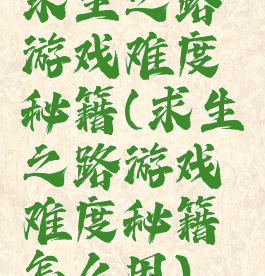 求生之路
游戏难度
秘籍(求生
之路游戏
难度秘籍
怎么用)